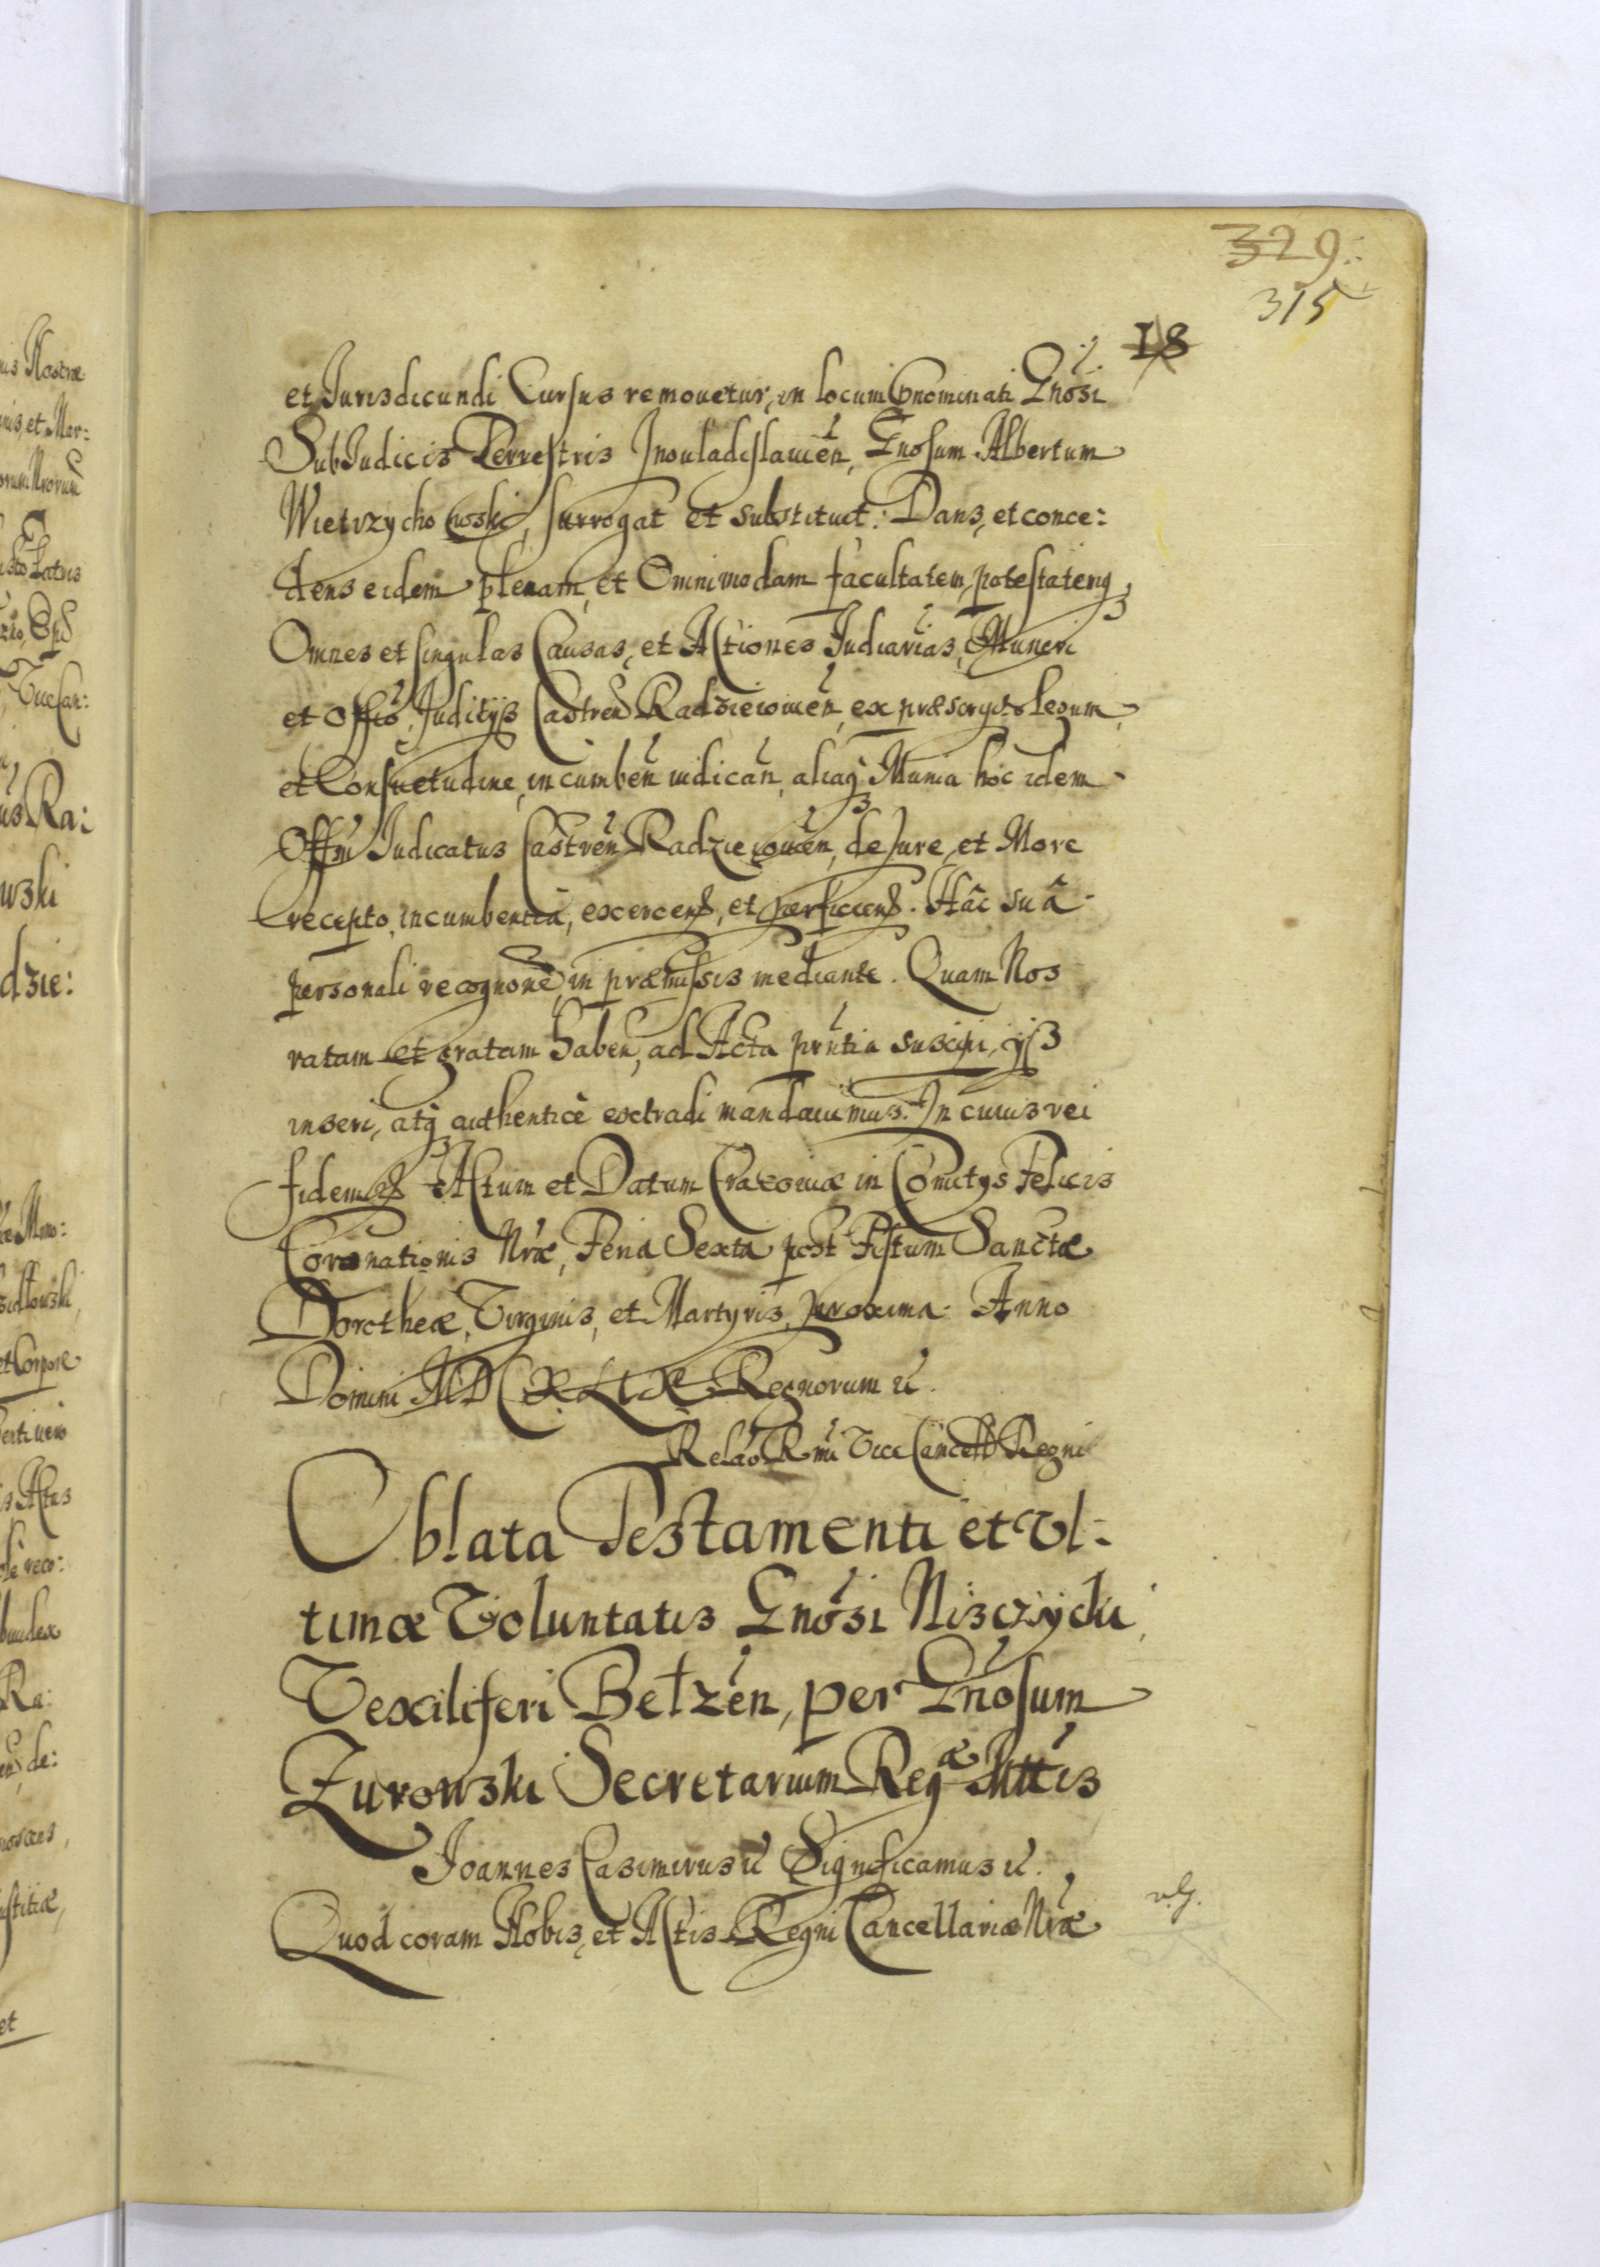 329.
315
18
et Jurisdicundi Cursus remouetur, in locum Gnominati Gnosi
SubJudicis Terrestris Jnouladislauien, Gnosum Albertum
Wierzychowski, surrogat et substituit: Dans, et conce:
dens eidem plenam, et Omnimodam facultatem, potestatemq3
Omnes et singulas Causas, et Actiones Judiarias, Muneri
et Offio, Judicijs Castren Radzieiouien, ex præscripto Legum,
et Consuetudine, incumben iudican, aliaq3 Munia hoc idem
Offm Judicatus Castren Radzieiouien, de Jure, et More
recepto, incumbentia, excercend, et perficiend. Hâc suâ
personali recognone, in præmissis mediante. Quam Nos
ratam et gratam haben, ad Acta pntia suscipi, ijs3
inseri, atq3 authenticè extradi mandauimus. Jn cuius rei
fidem Actum et Datum Cracouiæ in Comitys Felicis
Coronationis Nræ, Feria Sexta post Festum Sanctæ
Dorotheæ, Virginis, et Martyris, proxima. Anno
Domini MDCXLIX Regnorum etc.
Relao Rmi Vice Cancell Regni
Oblata Testamenti et Vl:
timæ Voluntatis Gnosi Nisczycki,
Vexiliferi Betzen, per Gnosum
Zurowski Secretarium Regæ Mttis
Joannes Casimirus etc Significamus etc.
Quod coram Nobis, et Actis Regni Cancellariæ Nræ